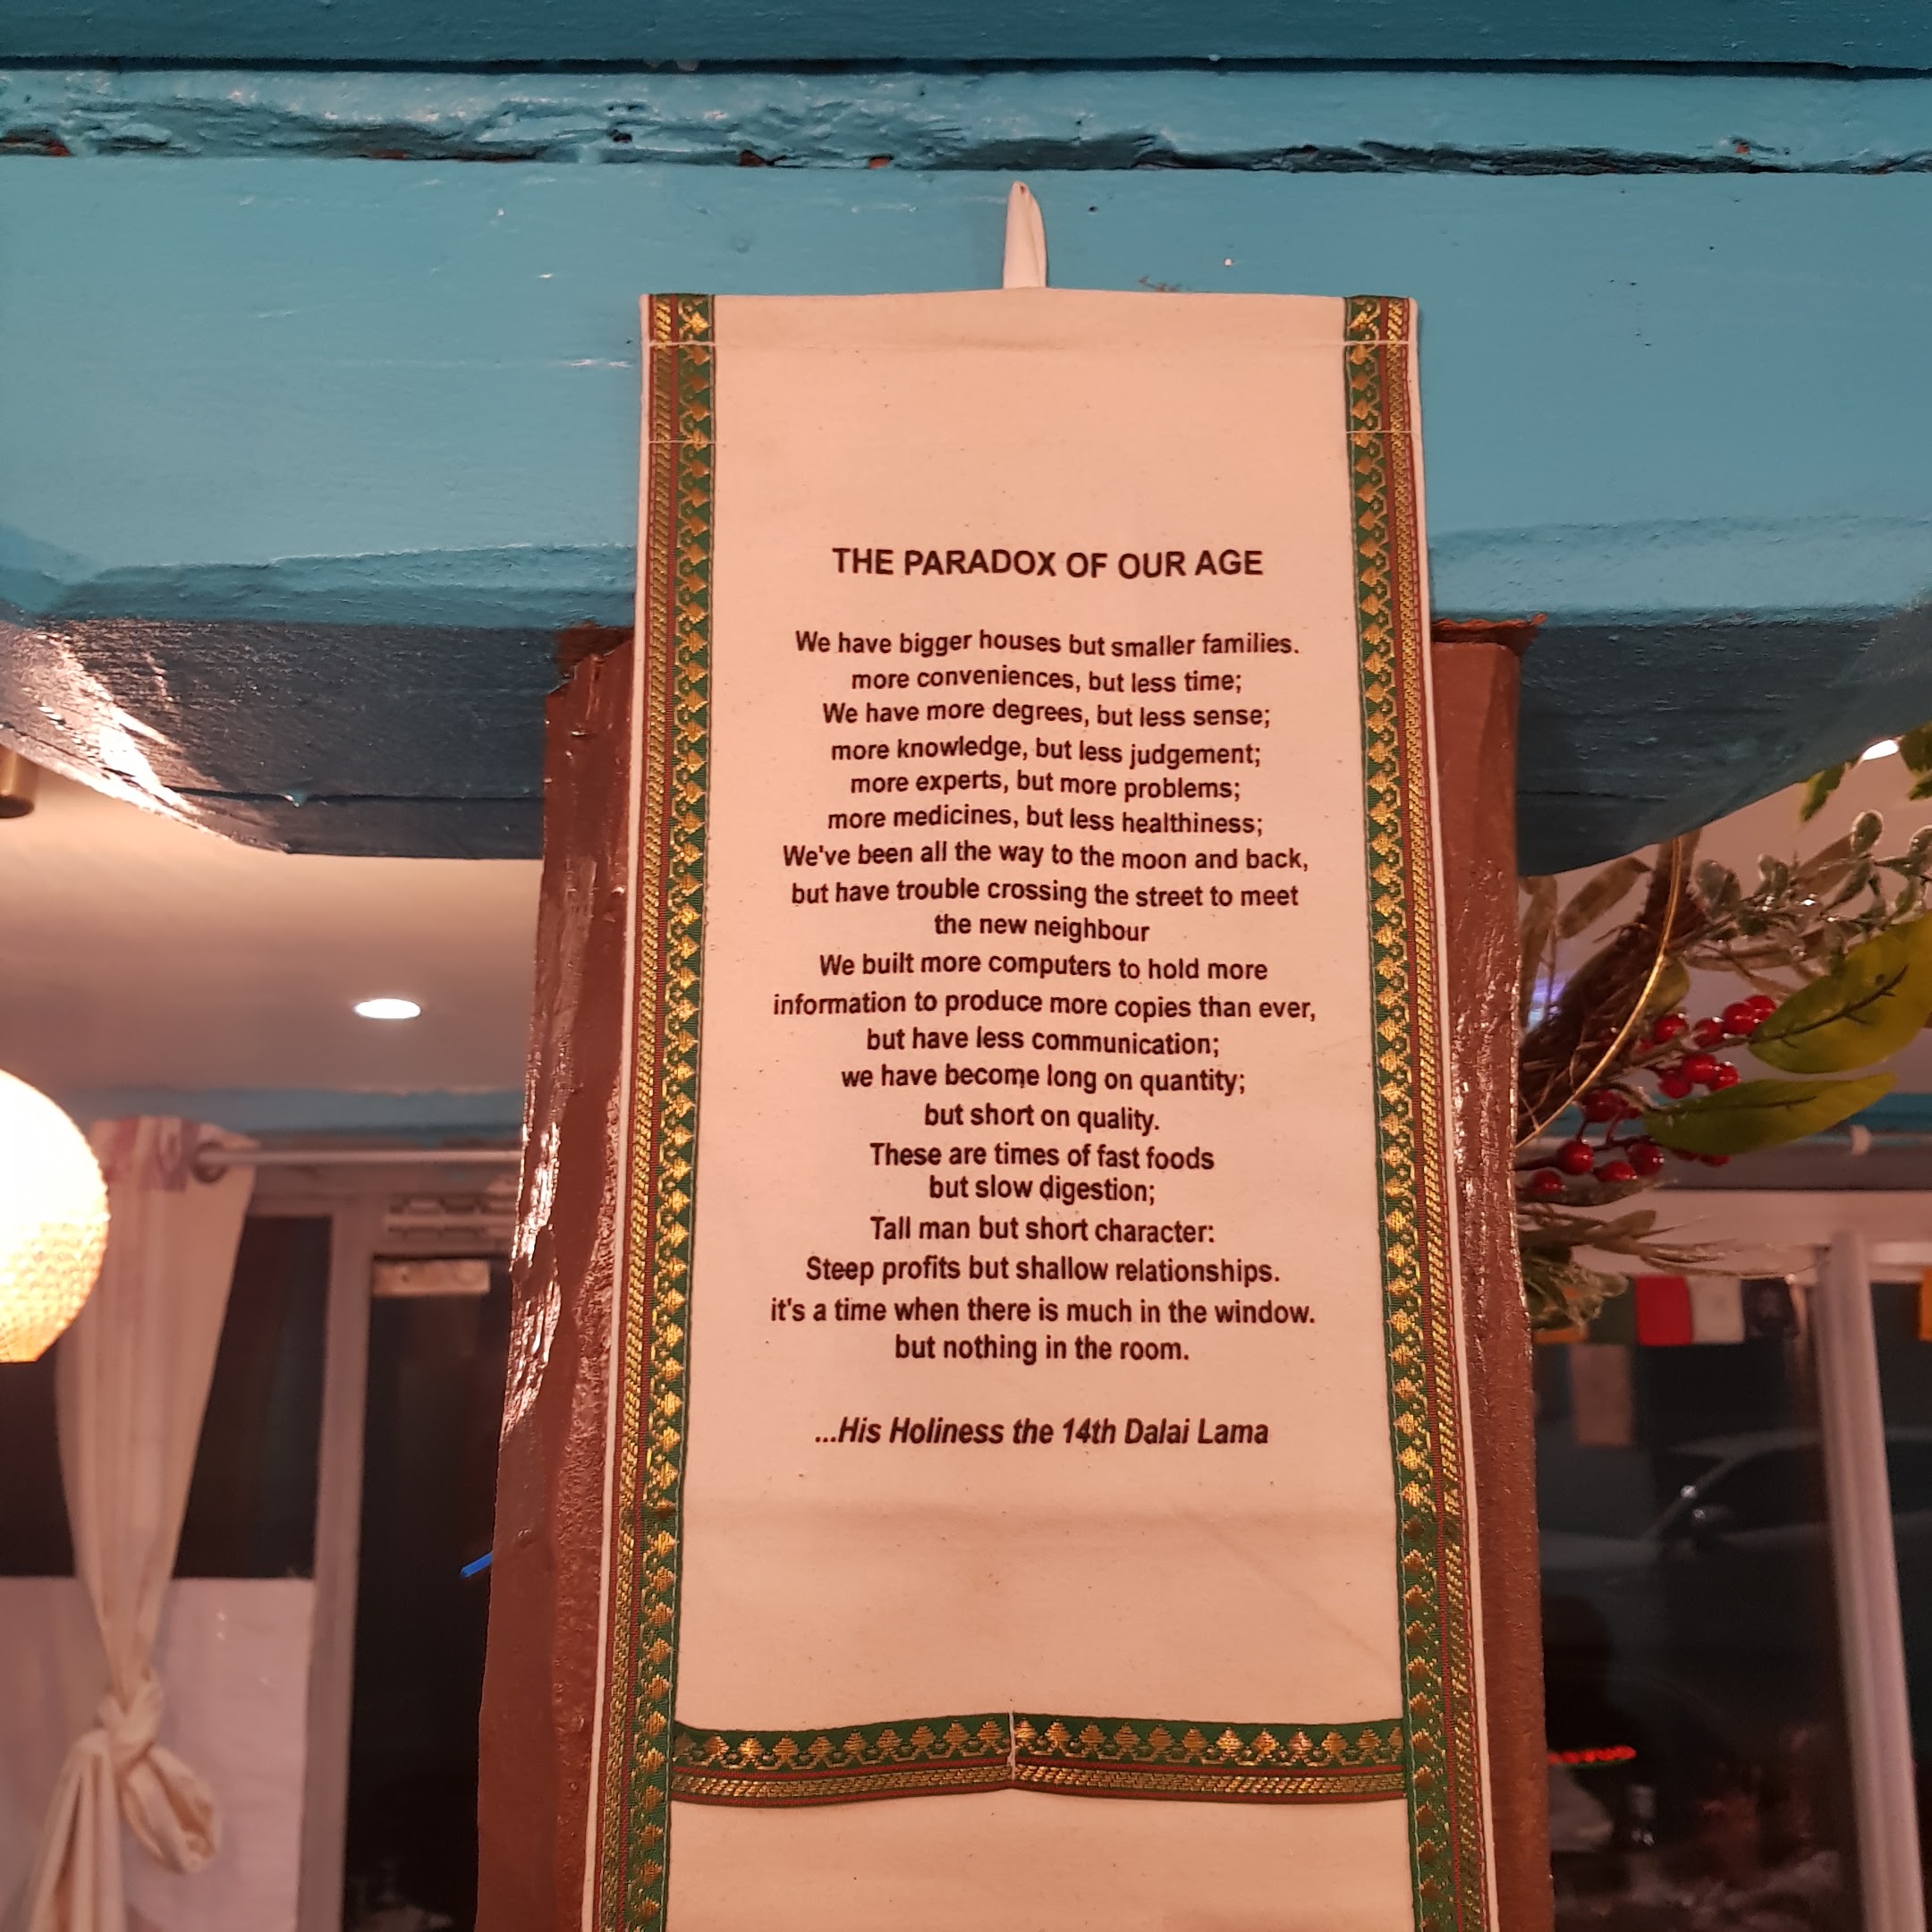 THE PARADOX OF OUR AGE
We have bigger houses but smaller families.
more conveniences, but less time;
We have more degrees, but less sense;
more knowledge, but less judgement;
more experts, but more problems;
more medicines, but less healthiness;
We've been all the way to the moon and back,
but have trouble crossing the street to meet
the new neighbour
We built more computers to hold more
information to produce more copies than ever,
but have less communication;
we have become long on quantity;
but short on quality.
These are times of fast foods
but slow digestion;
Tall man but short character:
Steep profits but shallow relationships.
it's a time when there is much in the window.
but nothing in the room.
...His Holiness the 14th Dalai Lama